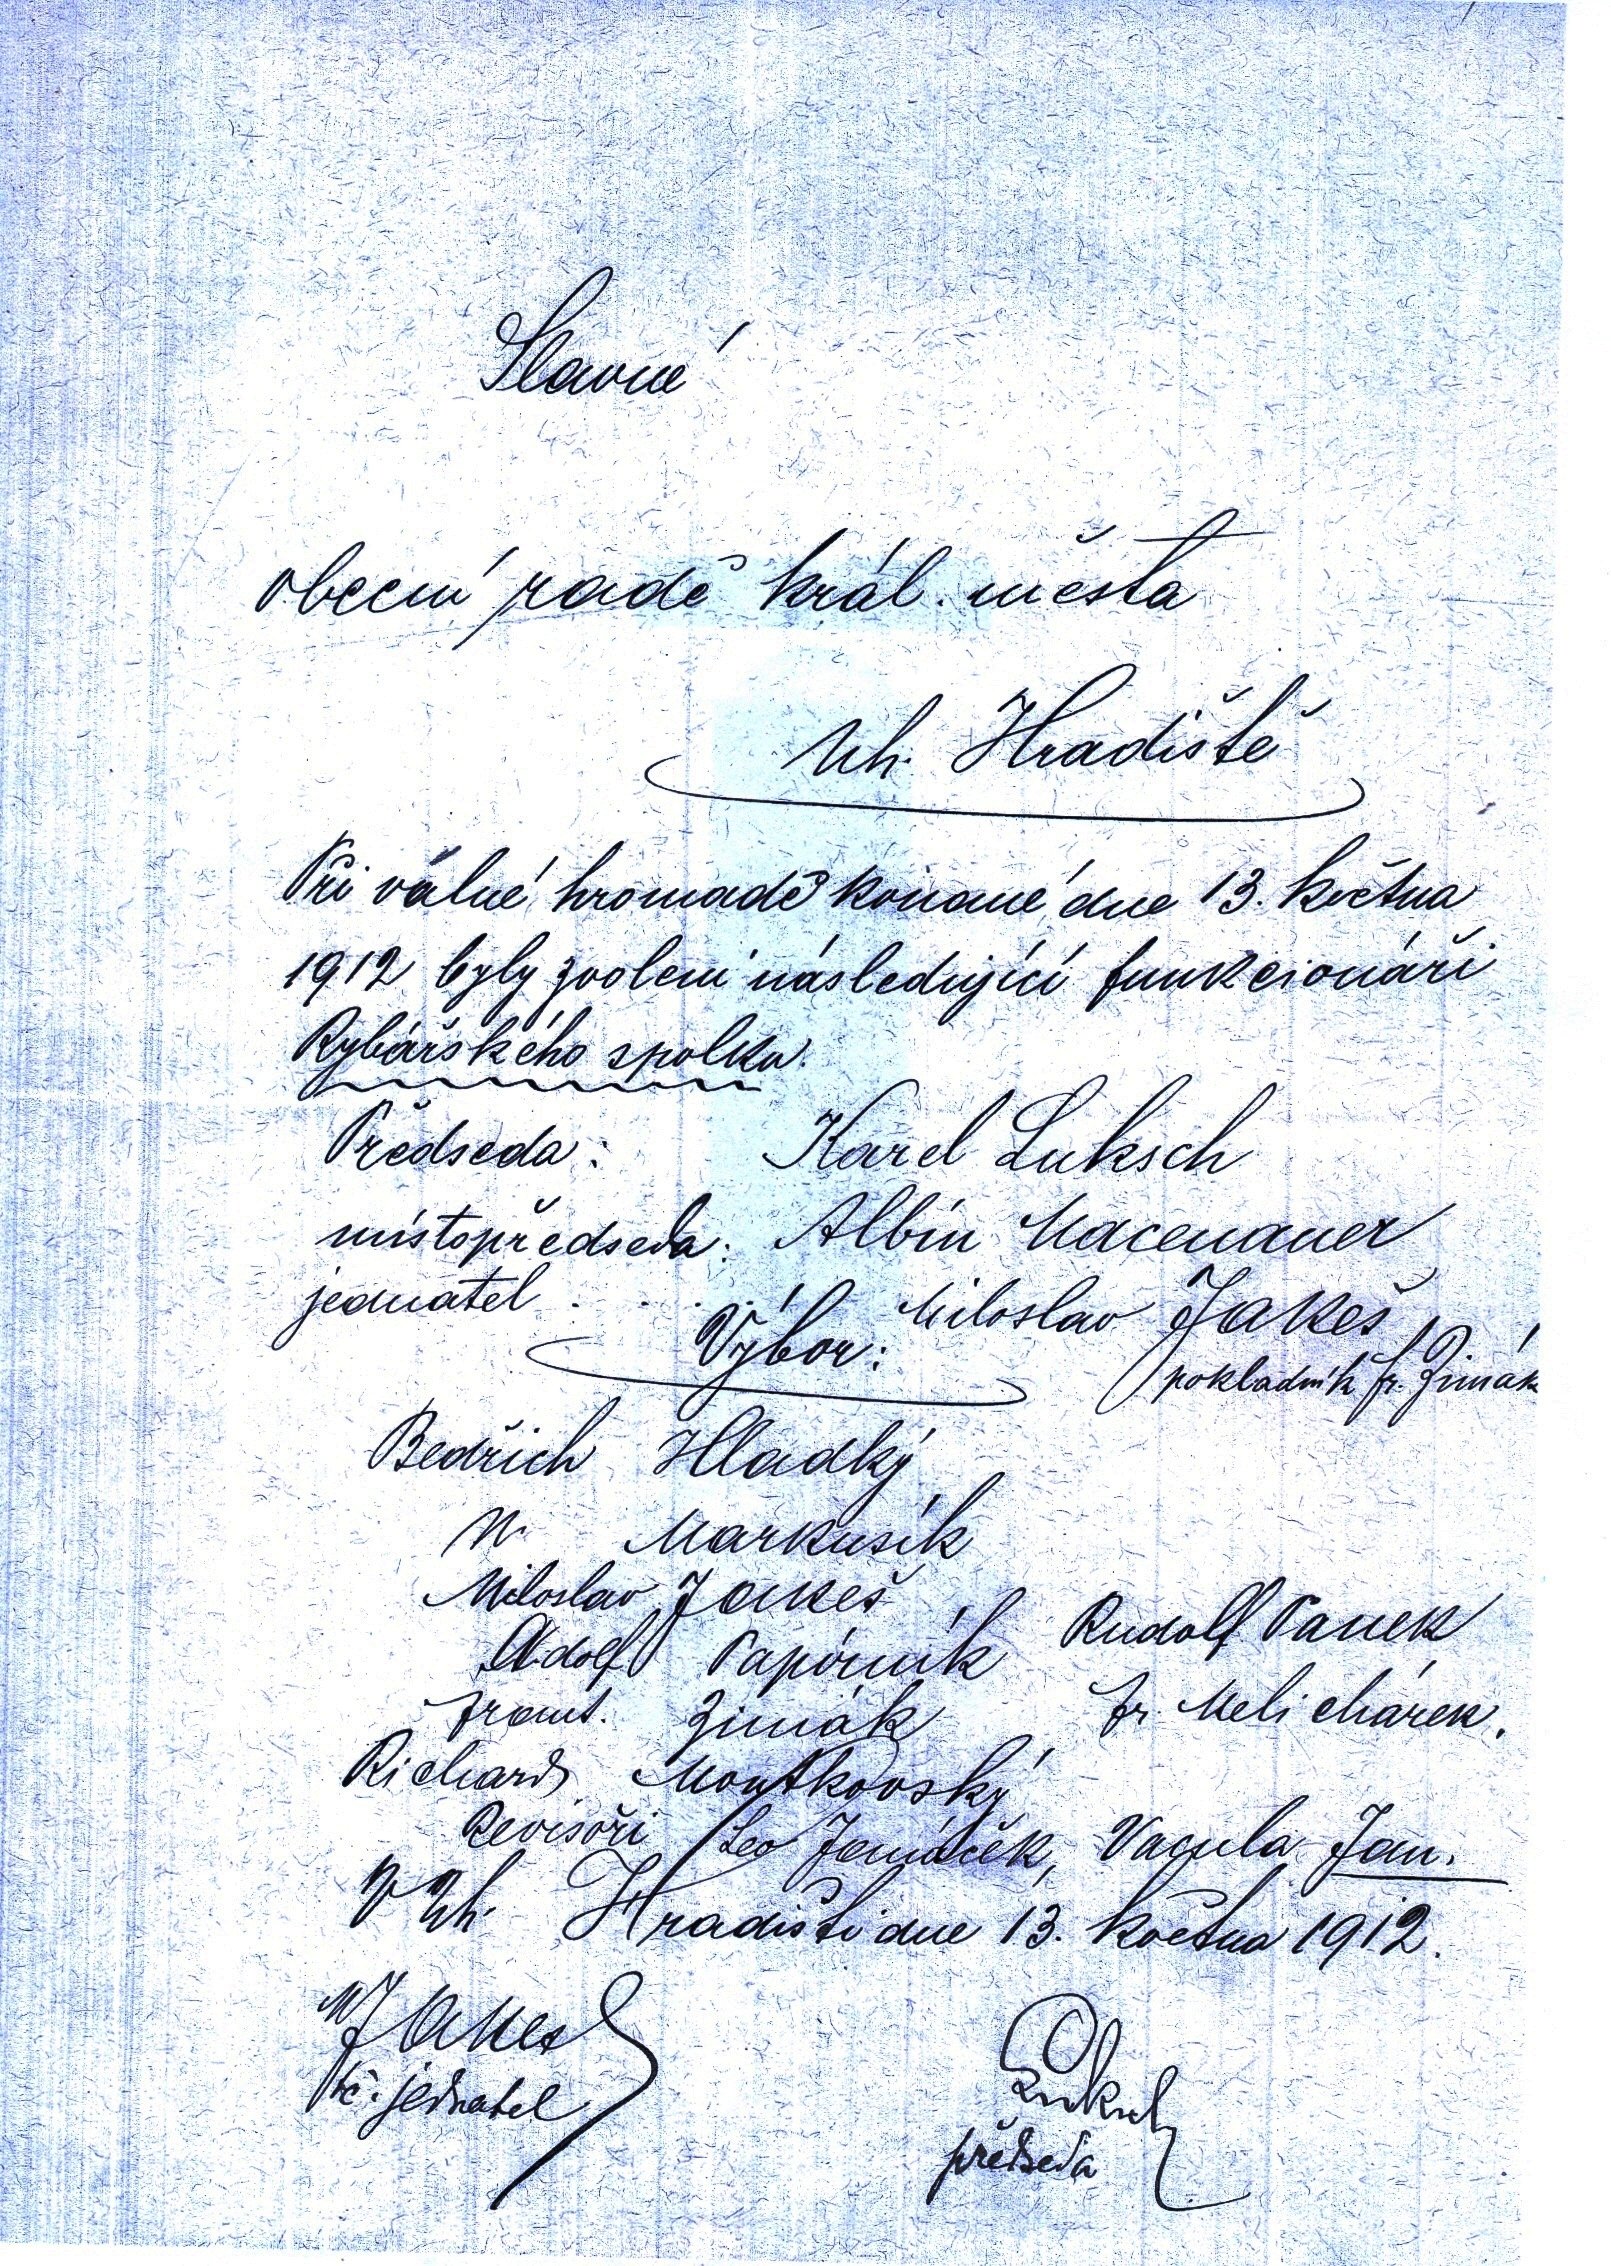 Slavné
obecní radě král. města
Uh. Hradiště
Při válné hromadě konané dne 13. května
1912 byly zvoleni následující funkcionáři
Rybářského spolku.
Předseda: Karel Luksch
místopředseda: Albín Macenauer
jednatel . . . . . Miloslav Jakeš
Výbor: pokladník Fr. Zimák
Bedřich Hladký
N. Markusík
Miloslav Jakeš
Adolf Papírník Rudolf Panek
Frant. Zimák Fr. Melichárek.
Richard
Revisoři Leo Janáček, Vacula Jan.
V Uh. Hradišti dne 13. května 1912.
MJakeš Luksch
t.č. jednatel předseda